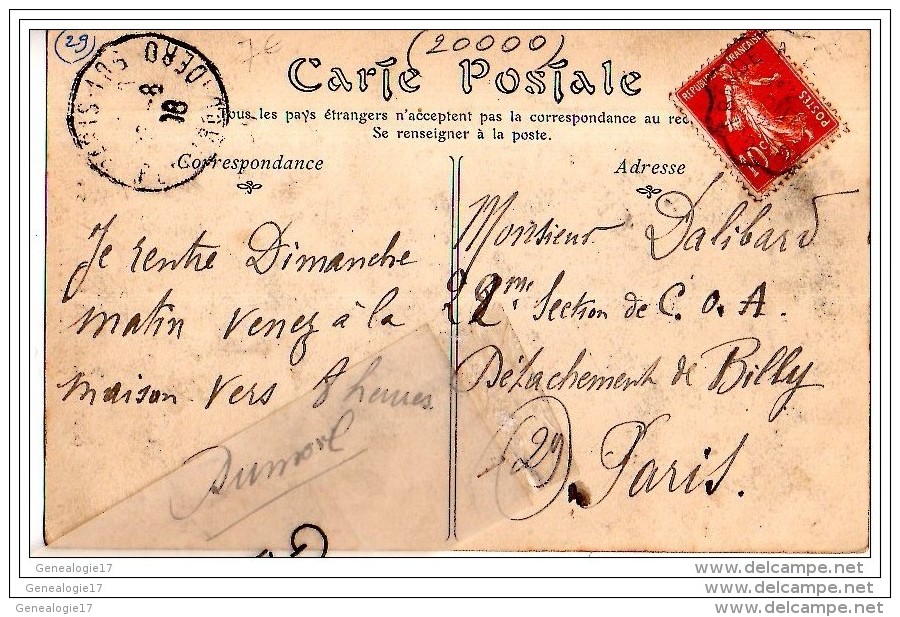 29
7€
(20000)
Carte Postale
Tous les pays étrangers n'acceptent pas la correspondance au rec
Se renseigner à la poste.
Correspondance
Adresse
RÉPUBLIQUE FRANÇAISE
POSTES
10c
18
Je rentre Dimanche
matin venez à la
maison vers 8 heures
Dumoril
Monsieur Dalibard
22me Section de C. O. A.
Détachement de Billy
29
Paris.
Genealogie17
Genealogie17
Genealogie17
www.delcampe.net
www.delcampe.net
www.delcampe.net